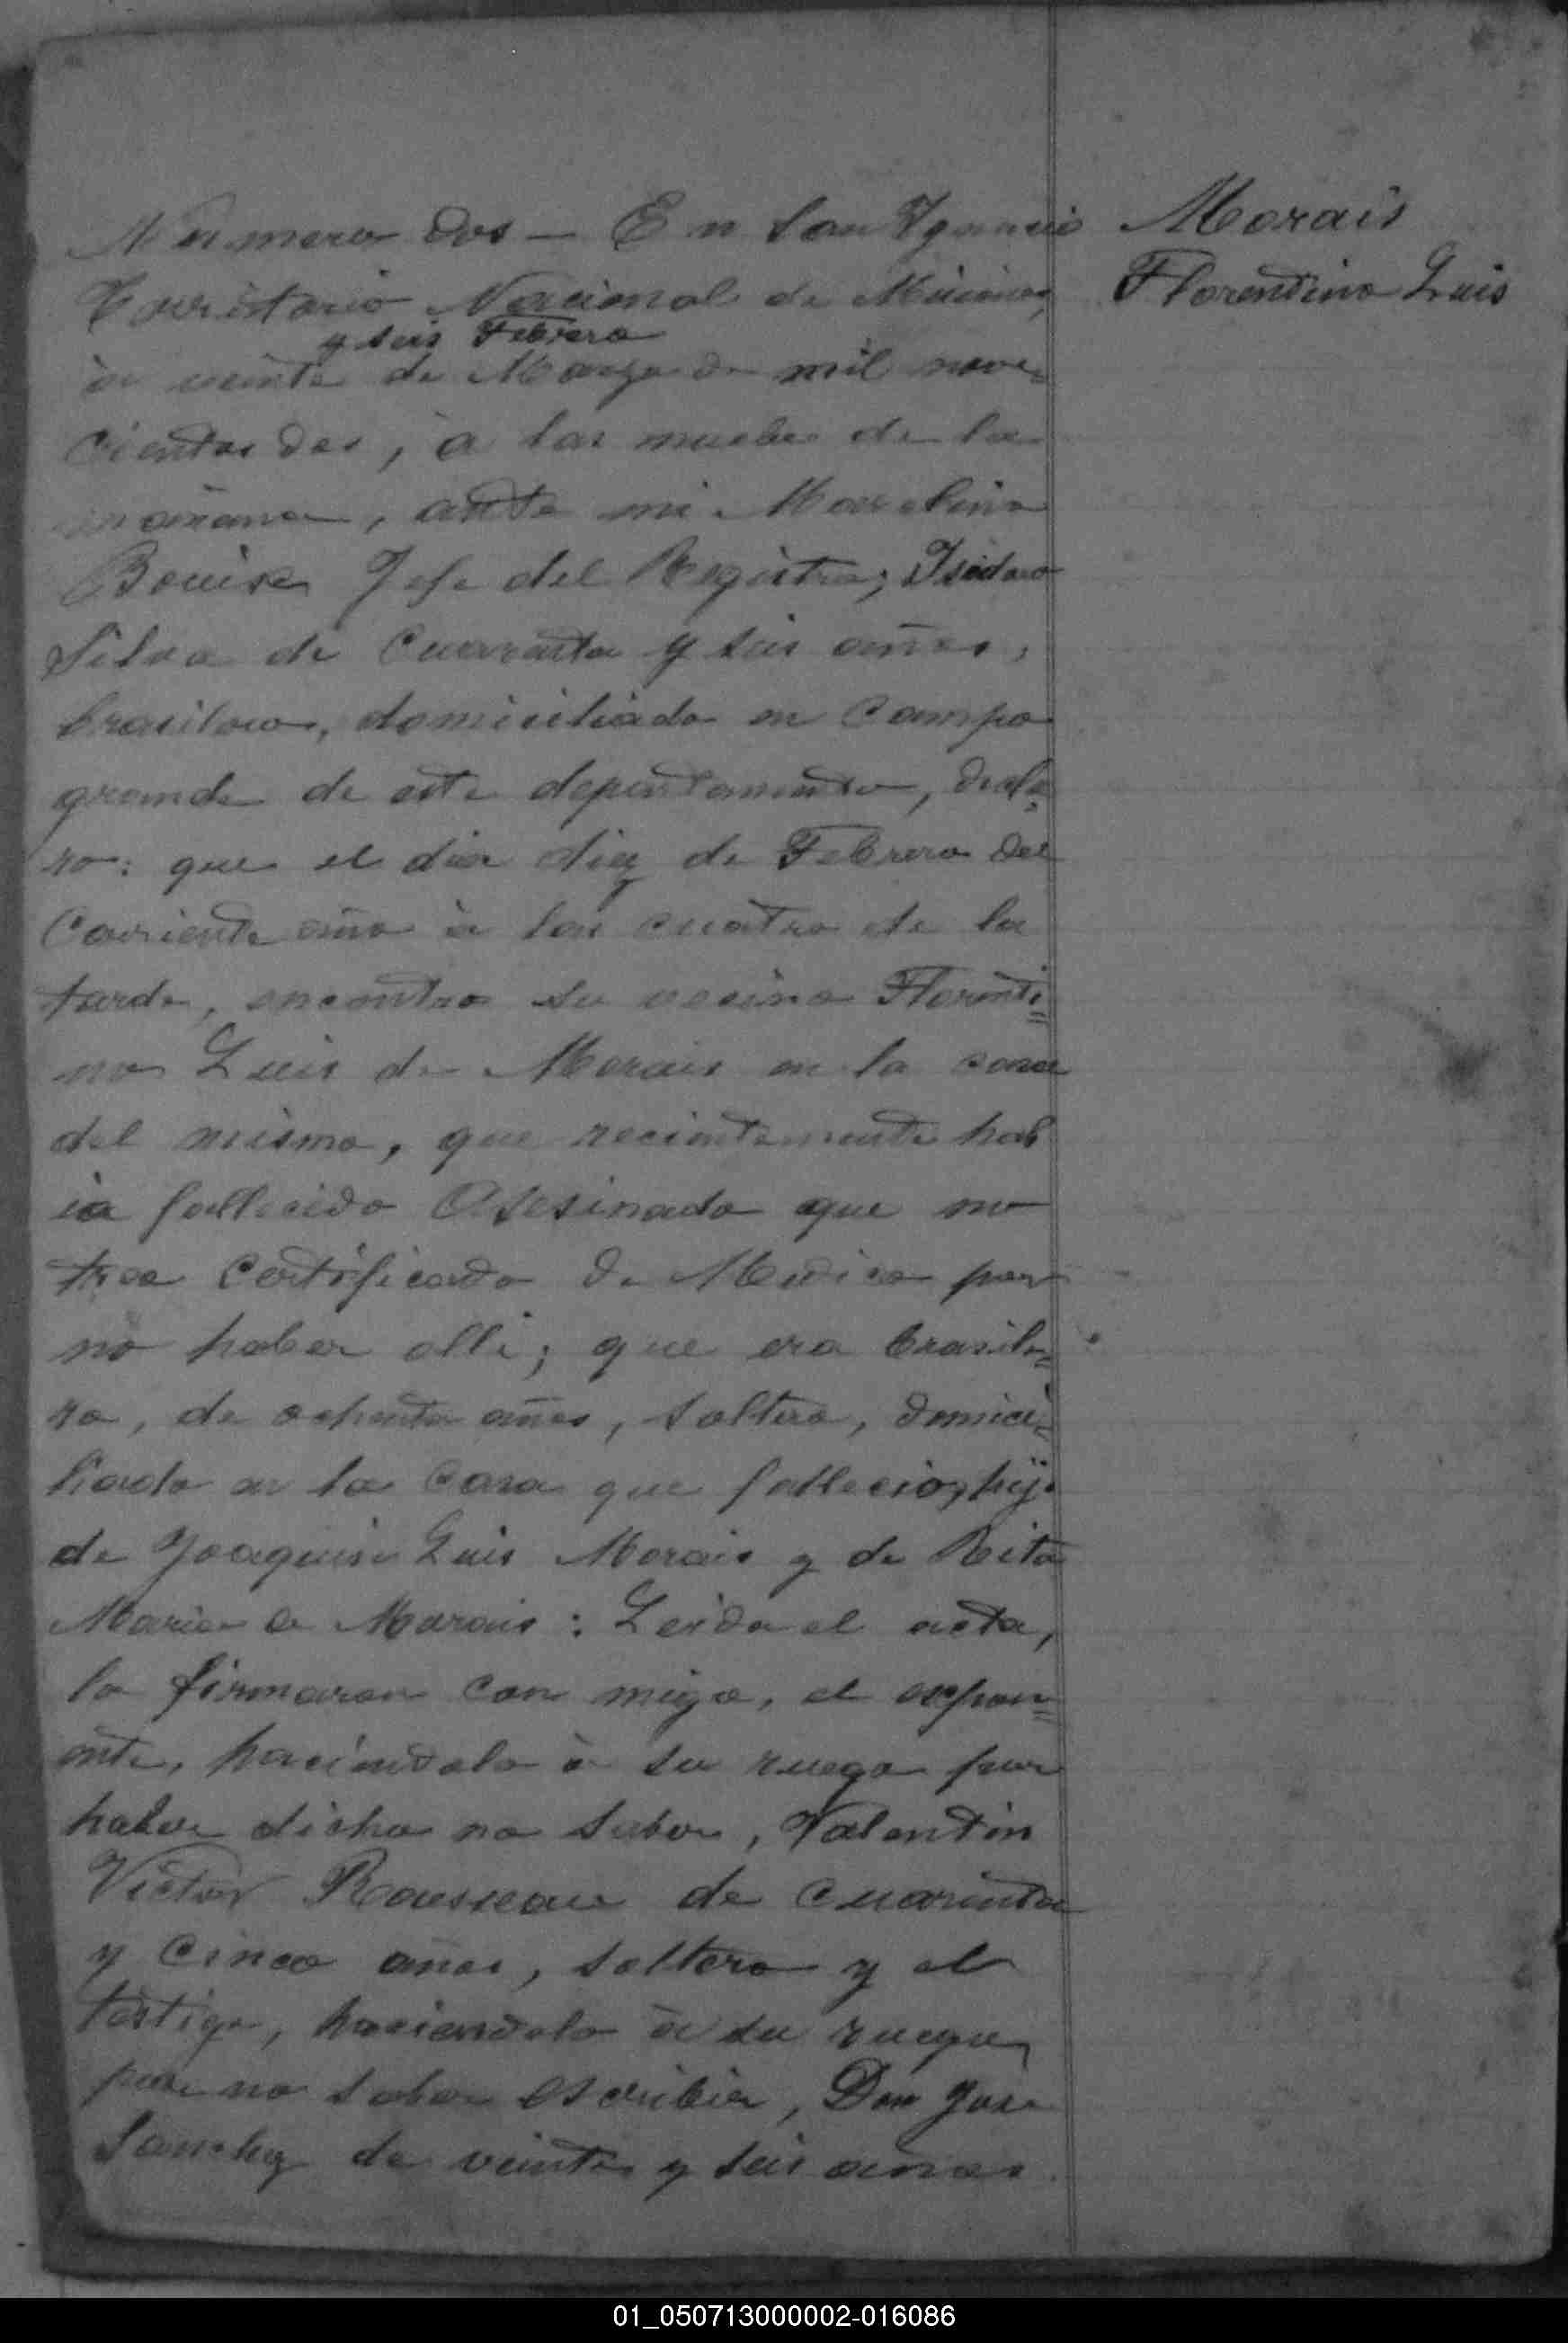 Morais
Florentino Luis
Numero dos — En San Ygnacio
Territorio Nacional de Misiones,
y seis Febrero
à veinte de Marzo de mil nove=
cientos dos, à las nueve de la
mañana, ante mi Marcelino
Bouix Jefe del Registro; Isidoro
Silva de Cuarenta y seis años,
brasilero, domiciliado en Campo
grande de este departamento, decla
ro: que el dia diez de Febrero del
Corriente año à las cuatro de la
tarde, encontro su vecino Florenti=
no Luis de Morais en la casa
del mismo, que recientemente hab
ia fallecido Asesinado que no
trae Certificado de Medico por
no haber alli; que era brasile=
ro, de ochenta años, soltero, domici=
liado en la Casa que fallecio, hijo
de Joaquin Luis Morais y de Rita
Maria de Morais: Leida el acta,
la firmaron con migo, el expon=
ente, haciendolo à su ruego por
haber dicho no saber, Valentin
Victor Rousseau de cuarenta
y cinco años, soltero y el
testigo, haciendolo à su ruego
por no saber escribir, Don Jose
Sanchez de veinte y seis años
01_050713000002-016086